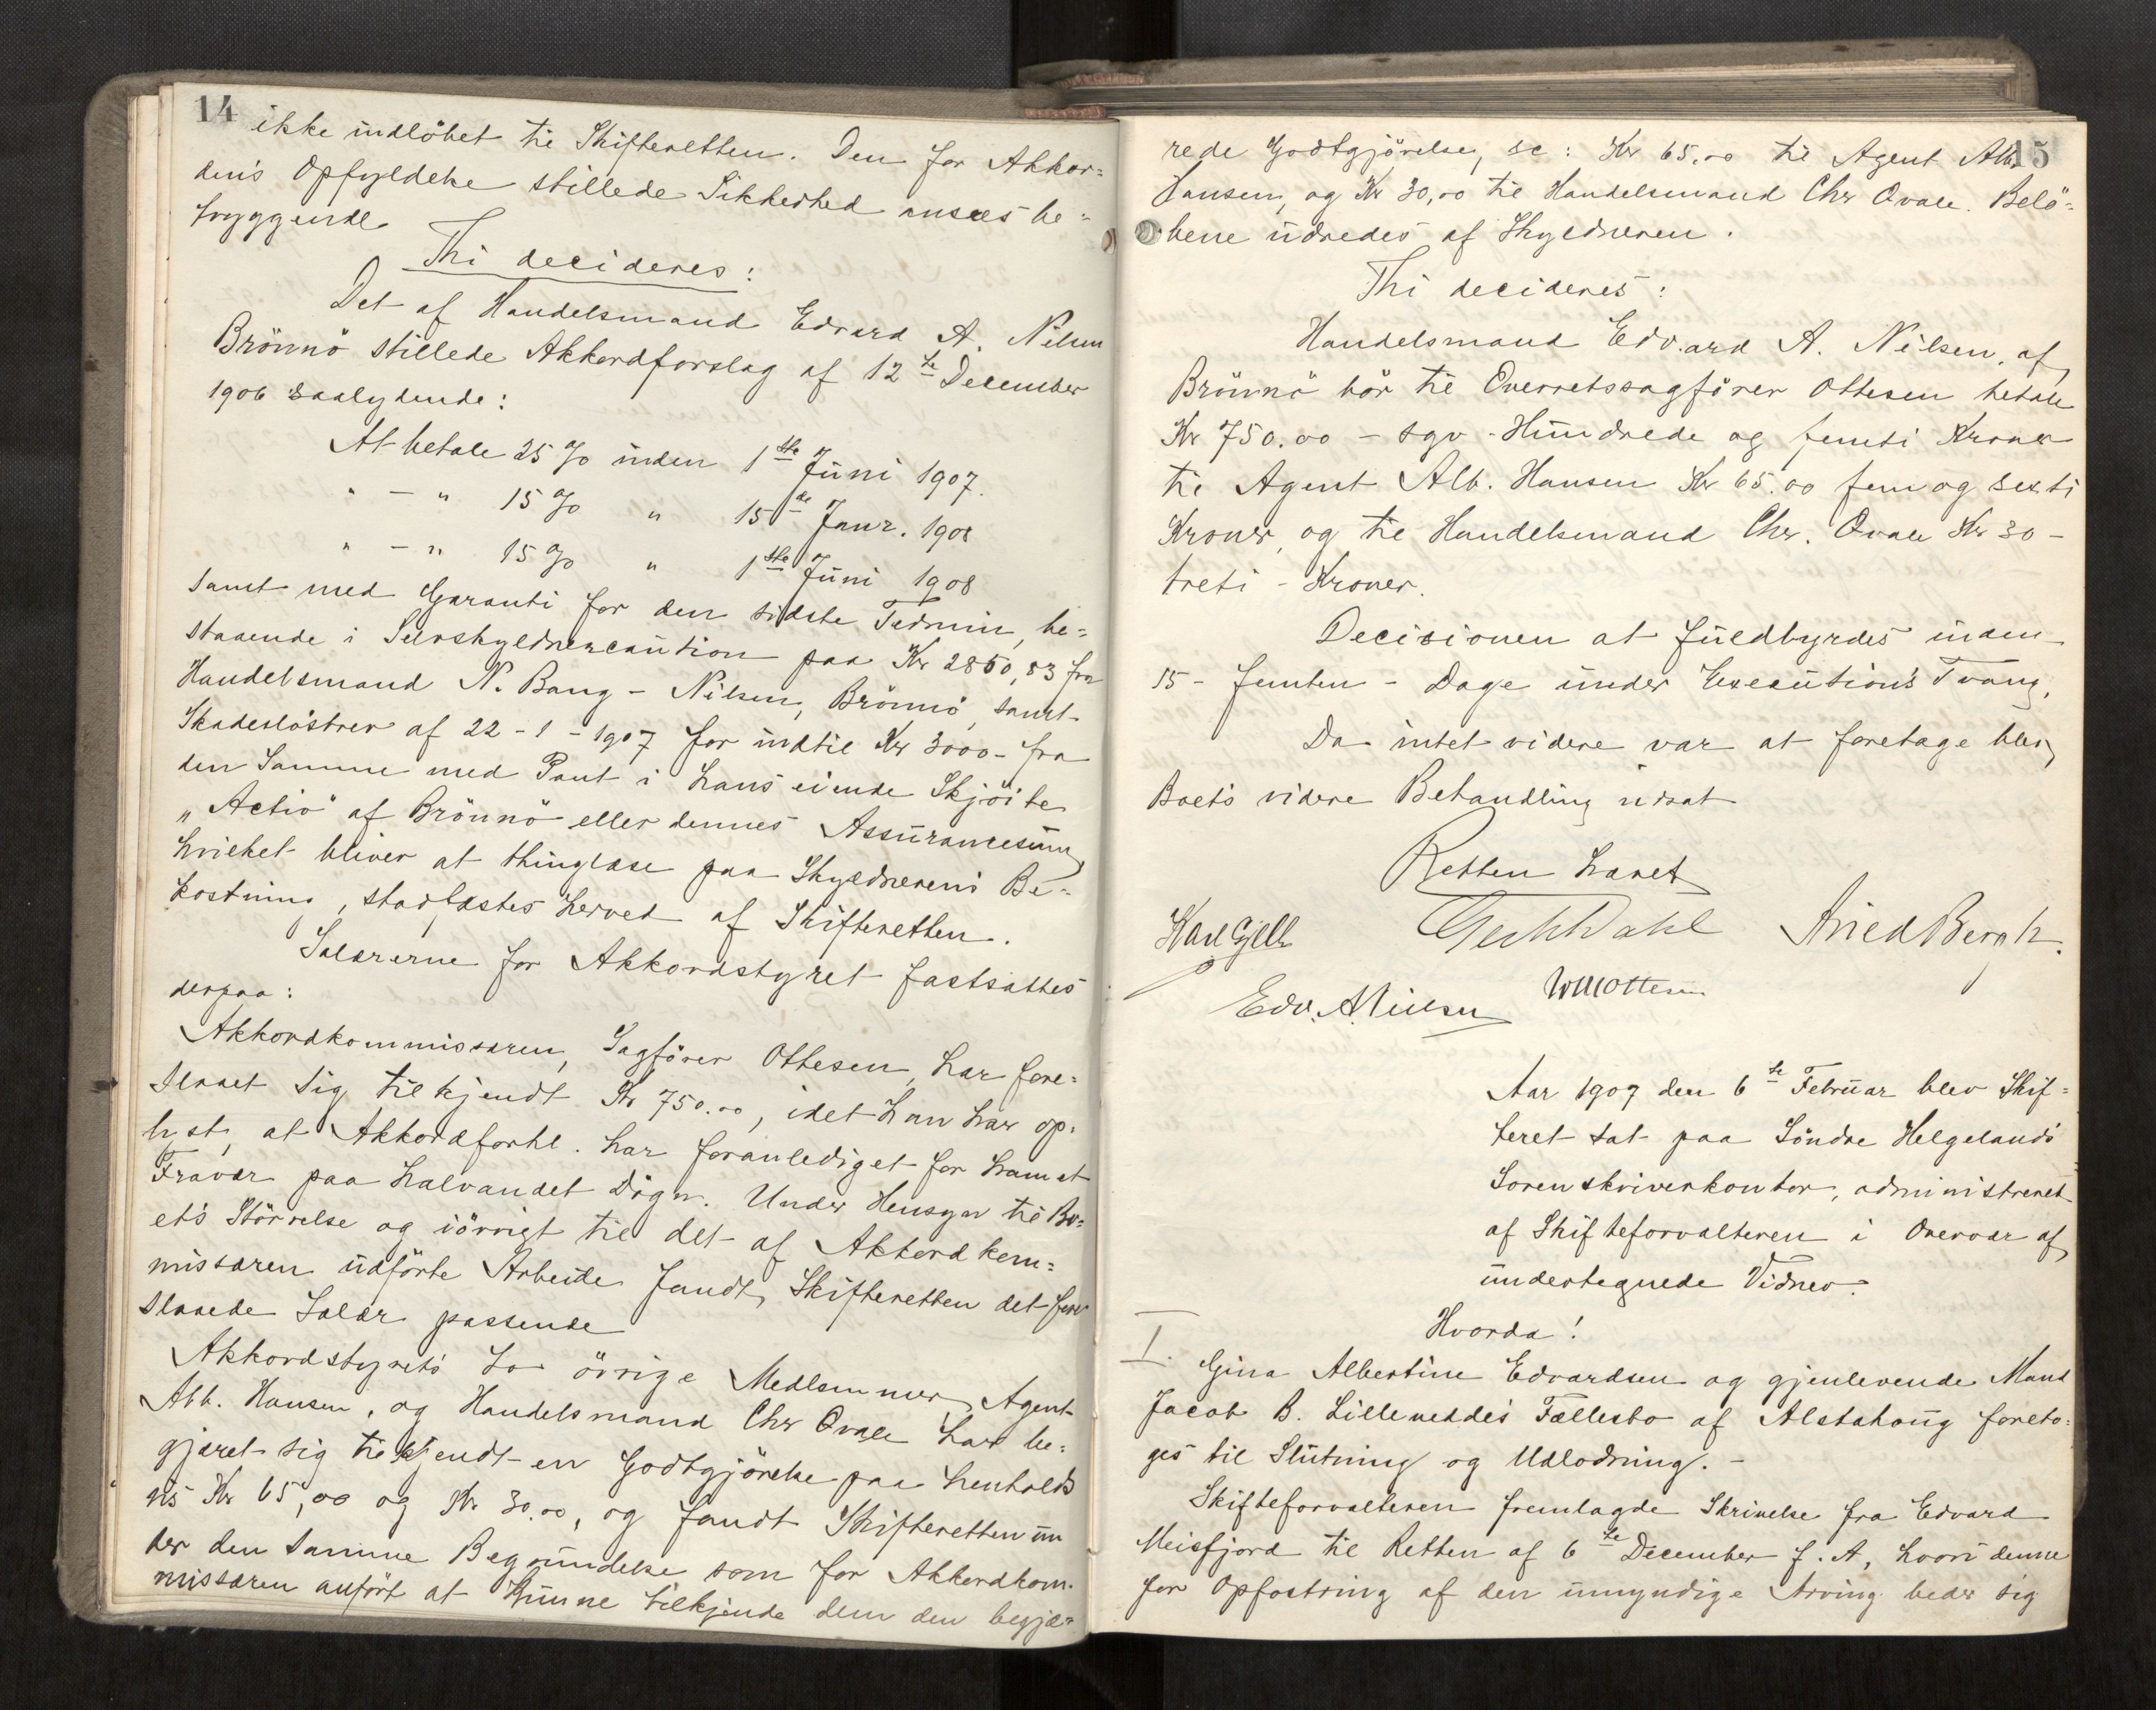 14
ikke indløbet til Skifteretten. Den for Akkor-
dens Opfyldelse stillede Sikkerhed ansees be-
tryggende
Thi decideres:
Det af Handelsmand Edvard A. Nilsen
Brönnö stillede Akkordforslag af 12te December
1906 saalydende:
At betale 25 % inden 1ste Juni 1907.
" - " 15 % " 15de Janr. 1908
" - " 15 % " 1ste Juni 1908
samt med Garanti for den sidste Termin, be-
staaende i Selvskyldnercaution paa Kr 2850,83 fra
Handelsmand N. Bang-Nilsen, Brönnö, samt
Skadesløsbrev af 22-1-1907 for indtil Kr 3000- fra
den Samme med Pant i hans eiende Skjöite
"Activ" af Brönnö eller dennes Assurancesum,
hvilket bliver at thinglæse paa Skyldnerens Be-
kostning, stadfæstes herved af Skifteretten.
Salærerne for Akkordstyret fastsattes
derpaa:
Akkordkommissæren, Sagförer Ottesen, har fore-
slaaet sig tilkjendt Kr 750.00, idet han har op-
lyst, at Akkordforhl. har foranlediget for ham et
Fravær paa halvandet Dögn. Under Hensyn til Bo-
ets Störrelse og iövrigt til det af Akkordkom-
missæren udförte Arbeide fandt Skifteretten det fore
slaaede Salær passende
Akkordstyrets to övrige Medlemmer, Agent
Alb. Hansen, og Handelsmand Chr Qvale har be-
gjæret sig tilkjendt en Godtgjörelse paa henholds
vis Kr 65,00 og Kr 30.00, og fandt Skifteretten un
der den samme Begrundelse som for Akkordkom-
missæren anfört at kunne tilkjende dem den begjæ-
15
rede Godtgjörelse, sc: Kr 65.00 til Agent Alb.
Hansen, og Kr 30,00 til Handelsmand Chr Qvale. Belö-
bene udredes af Skyldneren.
Thi decideres:
Handelsmand Edvard A. Nilsen, af
Brönnö bör til Overretssagförer Ottesen betale
Kr 750.00 - syv-Hundrede og femti Kroner
til Agent Alb. Hansen Kr 65.00 fem og sexti
Kroner, og til Handelsmand Chr. Qvale Kr 30-
treti - Kroner.
Decisionen at fuldbyrdes inden
15 - femten - Dage under Executions Tvang.
Da intet videre var at foretage blev
Boets videre Behandling udsat
Retten hævet
Gert Dahl Fried Bergh.
Edv. A. Nilsen WM Ottesen
Aar 1907 den 6te Februar blev Skif-
teret sat paa Söndre Helgelands
Sorenskriverkontor, administreret
af Skifteforvalteren i Overvær af
undertegnede Vidner.
Hvorda!
I. Gina Albertine Edvardsen og gjenlevende Mand
Jacob B. Lilleneddes Fællesbo af Alstahoug foreto-
ges til Slutning og Udlodning.-
Skifteforvalteren fremlagde Skrivelse fra Edvard
Meisfjord til Retten af 6te December f. A, hvori denne
for Opfostring af den umyndige Arving beder sig